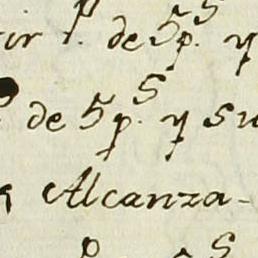 de 5 p.s y
de 5 p.s y su
Alcanza-